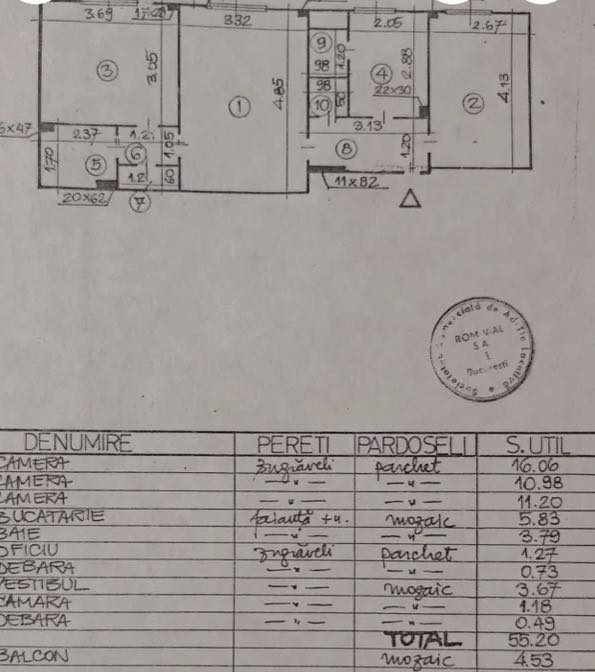 3.69
3.32
2.05
2.67
3
3.05
1
4.85
9
1.20
98
98
10
50
4
2.88
22×30
2
4.13
6×47
2.37
1.2
1.05
3.13
8
1.20
1.70
5
6
1.2
60
11×82
20×62
7
Societatea Comercială de Administrare Locativă
ROM VIAL
S.A.
1
București
DENUMIRE PERETI PARDOSELI S. UTIL
CAMERA zugrăveli parchet 16.06
CAMERA —〃— —〃— 10.98
CAMERA —〃— —〃— 11.20
BUCATARIE faianță +u. mozaic 5.83
BAIE —〃— —〃— 3.79
OFICIU zugrăveli parchet 1.27
DEBARA —〃— —〃— 0.73
VESTIBUL —〃— mozaic 3.67
CAMARA —〃— —〃— 1.18
DEBARA —〃— —〃— 0.49
TOTAL 55.20
BALCON mozaic 4.53